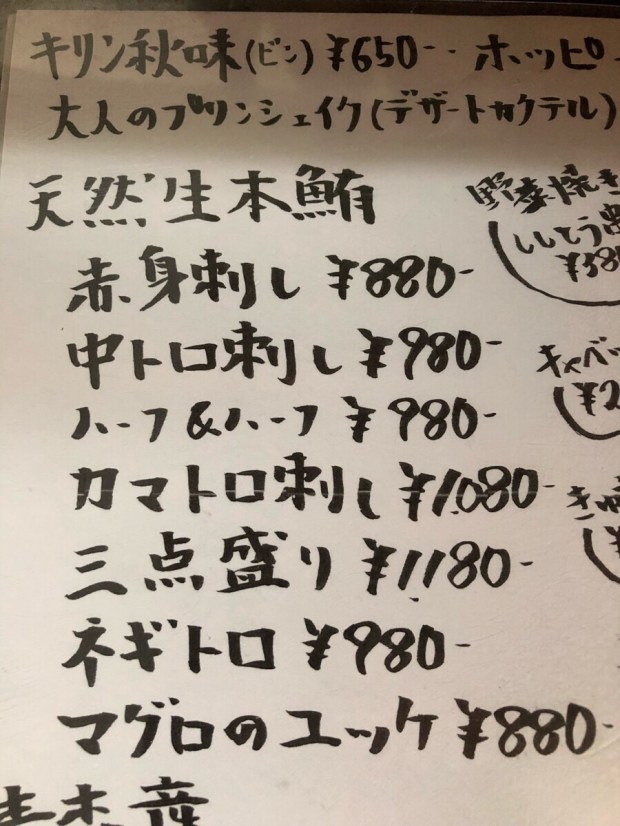 キリン秋味(ビン)¥650-・ホッピ
大人のプリンシェイク(デザートカクテル)
天然生本鮪
赤身刺し ¥880-
中トロ刺し ¥980-
ハーフ&ハーフ ¥980-
カマトロ刺し ¥1,080-
三点盛り ¥1,180-
ネギトロ ¥980-
マグロのユッケ ¥880-
野菜焼き
ししとう串
¥380
キャベツ
¥2